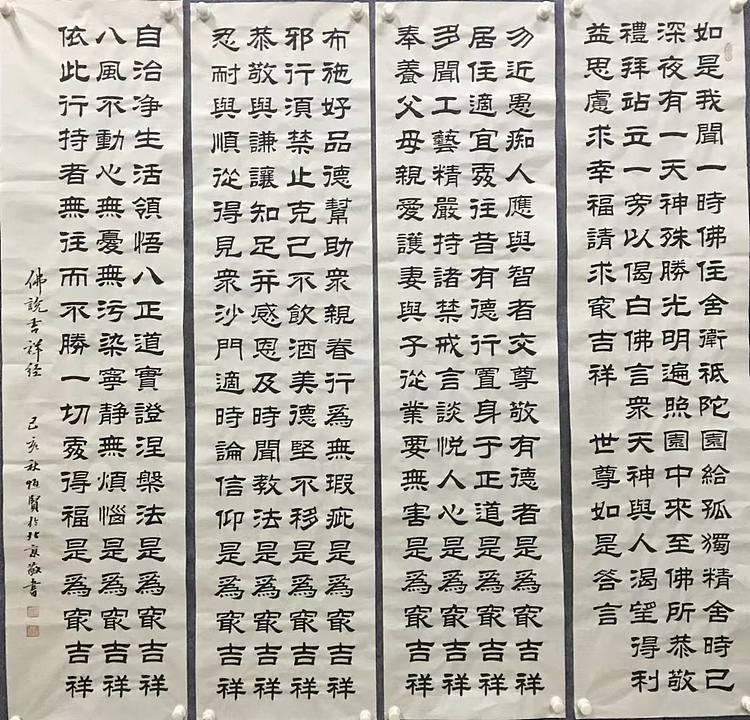 如是我聞一時佛住舍衛祇陀園給孤獨精舍時已
深夜有一天神殊勝光明遍照園中來至佛所恭敬
禮拜站立一旁以偈白佛言衆天神與人渴望得利
益思慮求幸福請求㝡吉祥 世尊如是答言
勿近愚痴人應與智者交尊敬有德者是爲㝡吉祥
居住適宜處往昔有德行置身于正道是爲㝡吉祥
多聞工藝精嚴持諸禁戒言談悅人心是爲㝡吉祥
奉養父母親愛護妻與子從業要無害是爲㝡吉祥
布施好品德幫助衆親眷行爲無瑕疵是爲㝡吉祥
邪行須禁止克己不飲酒美德堅不移是爲㝡吉祥
恭敬與謙讓知足并感恩及時聞教法是爲㝡吉祥
忍耐與順從得見衆沙門適時論信仰是爲㝡吉祥
自治净生活領悟八正道實證涅槃法是爲㝡吉祥
八風不動心無憂無污染寧静無煩惱是爲㝡吉祥
依此行持者無往而不勝一切處得福是爲㝡吉祥
佛說吉祥经 己亥秋賢於北京敬書